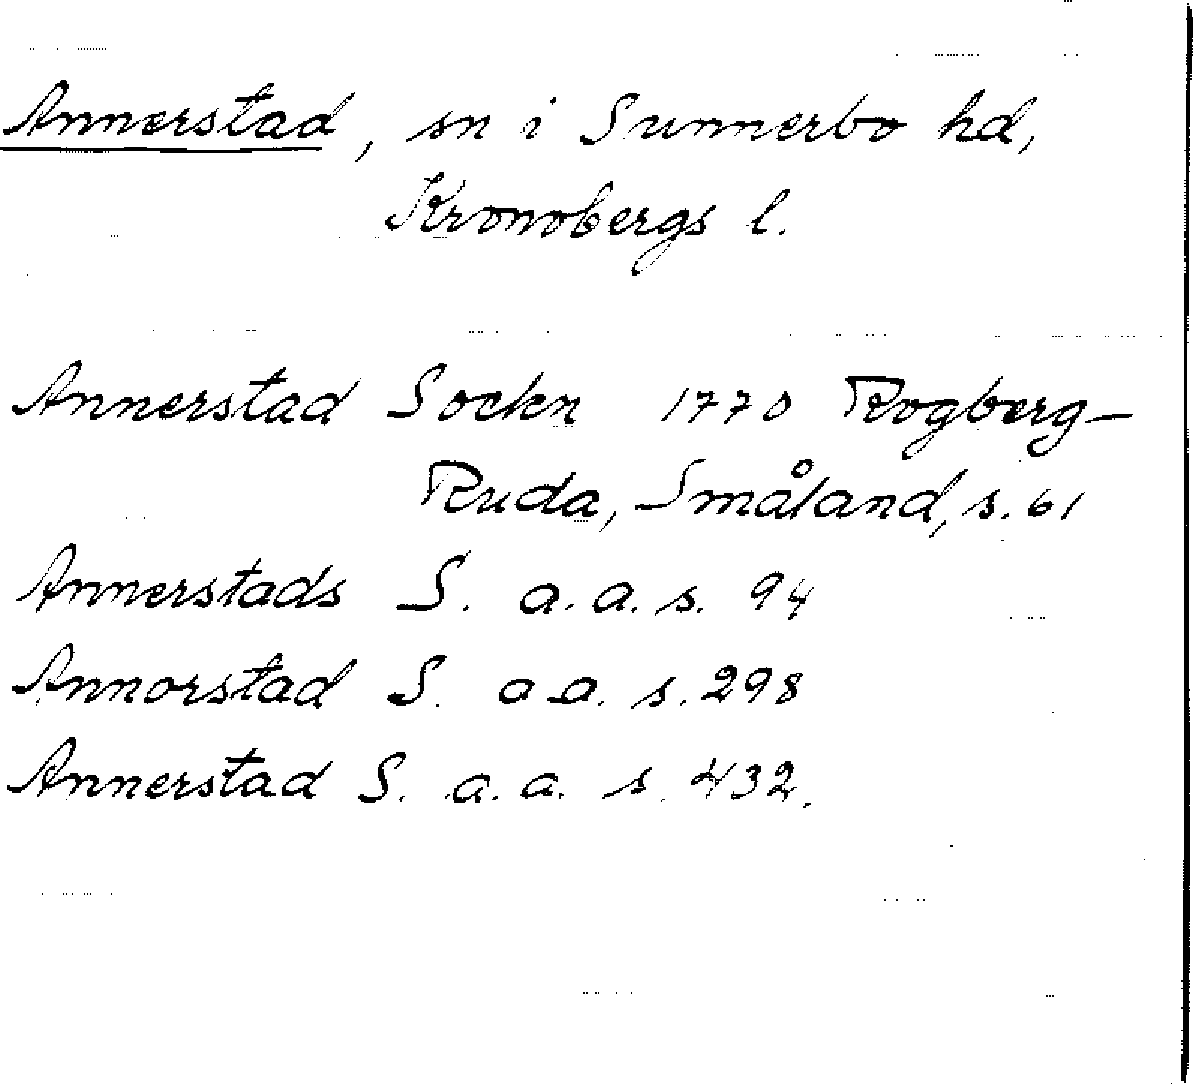 Annerstad, sn i Sunnerbo hd,
Kronobergs l.
Annerstad Sockn 1770 Rogberg-
Ruda, Småland, s. 61
Annerstads S. a.a. s. 94
Annorstad S. a a. s. 298
Annerstad S. a.a. s. 432.